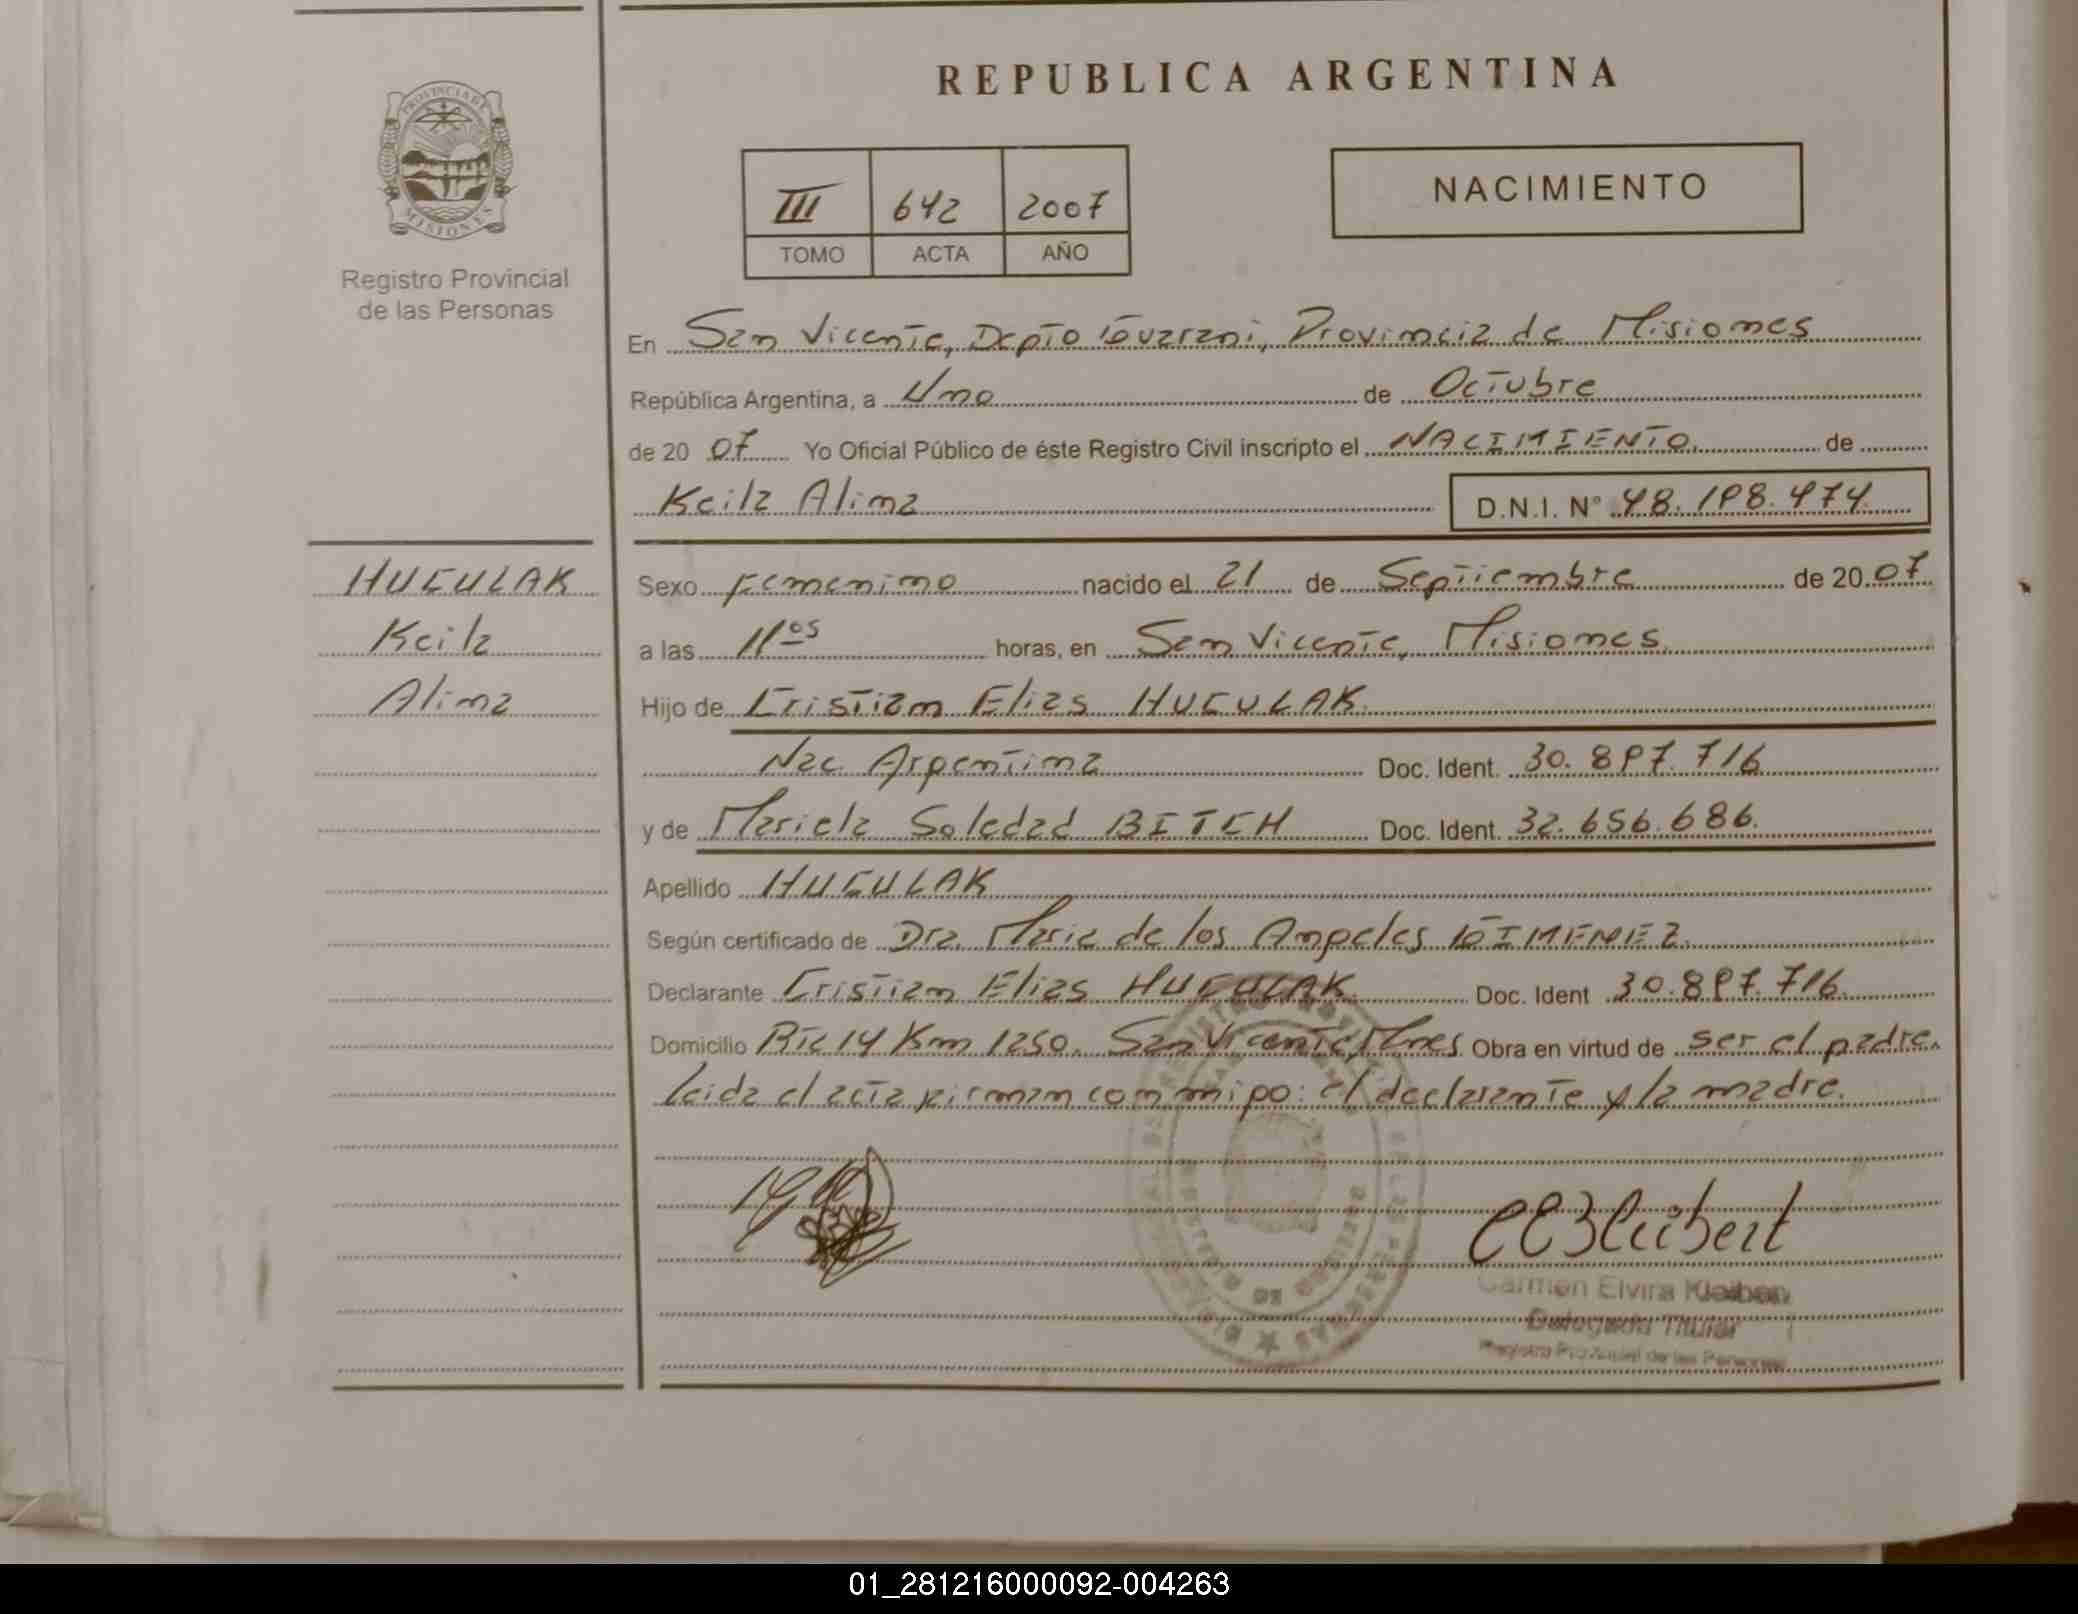 REPUBLICA ARGENTINA
PROVINCIA DE
MISIONES
Registro Provincial
de las Personas
III 642 2007
TOMO ACTA AÑO
NACIMIENTO
En San Vicente, Depto Guarani, Provincia de Misiones
República Argentina, a Uno de Octubre
de 20 07 Yo Oficial Público de éste Registro Civil inscripto el NACIMIENTO. de
Keila Alina D.N.I. N° 48.198.474
HUCULAK
Keila
Alina
Sexo Femenino nacido el 21 de Septiembre de 20 07
a las 11 os horas, en San Vicente, Misiones.
Hijo de Cristian Elias HUCULAK.
Nac. Argentina Doc. Ident. 30.897.716
y de Mariela Soledad BITCH Doc. Ident. 32.656.686.
Apellido HUCULAK
Según certificado de Dra. Maria de los Angeles GIMENEZ.
Declarante Cristian Elias HUCULAK Doc. Ident 30.897.716
Domicilio Rta 14 Km 1250. San Vicente, Mnes. Obra en virtud de ser el padre.
leida el acta firman conmigo: el declarante y la madre.
Carmen Elvira
Delegada Titular
Registro Provincial de las Personas
01_281216000092-004263